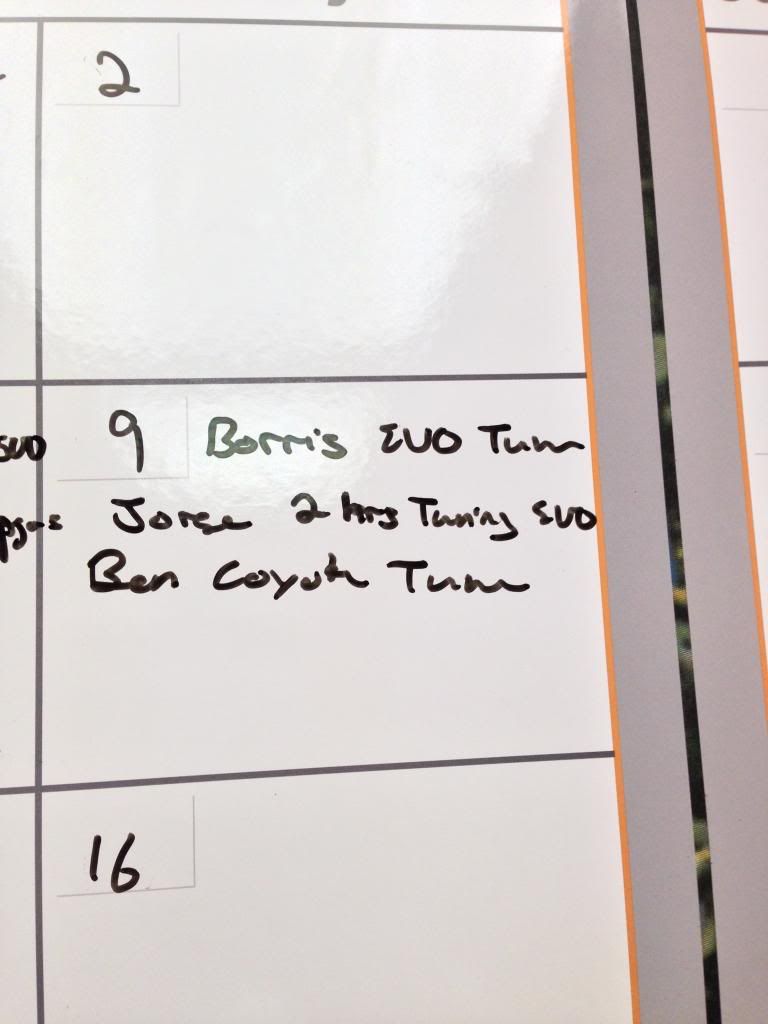 2
9 Borris EVO Tune
Jorge 2 hrs Tuning EVO
Ben Coyote Tune
16